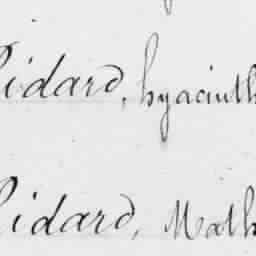 idard, hyacinth
idard, Math